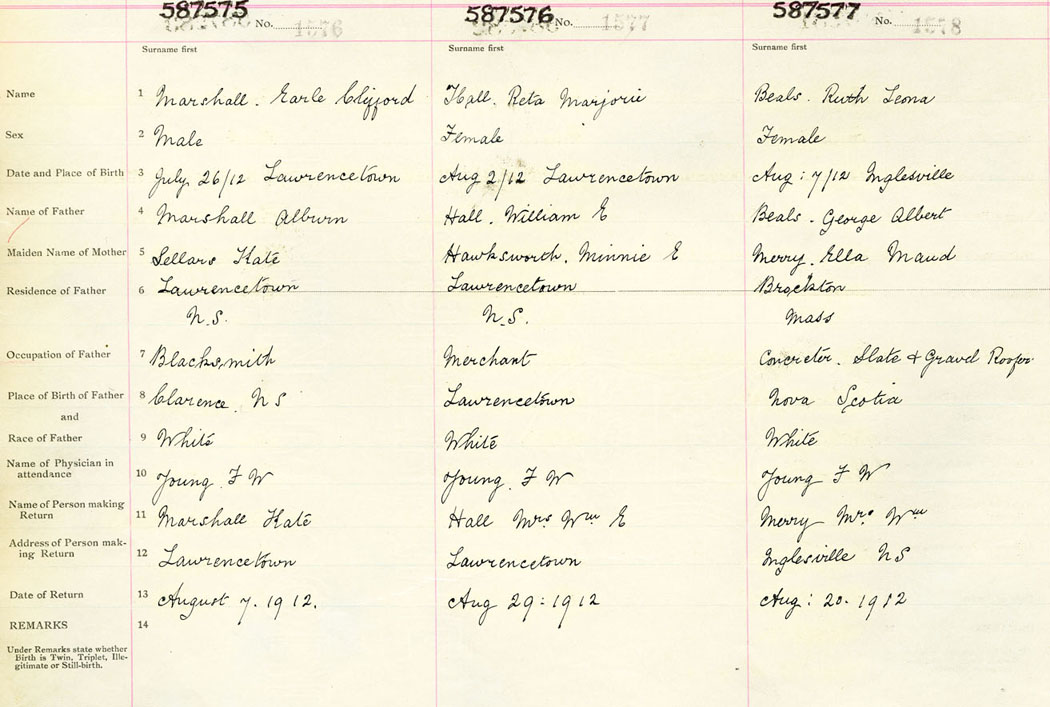 587575 587576 587577
No. 1576 No. 1577 No. 1578
Surname first Surname first Surname first
Name 1 Marshall. Earle Clifford Hall. Reta Marjorie Beals. Ruth Leona
Sex 2 Male Female Female
Date and Place of Birth 3 July 26/12 Lawrencetown Aug 2/12 Lawrencetown Aug: 7/12 Inglesville
Name of Father 4 Marshall Alburn Hall. William E Beals. George Albert
Maiden Name of Mother 5 Sellars Kate Hawksworth. Minnie E Merry. Ella Maud
Residence of Father 6 Lawrencetown Lawrencetown Brockton
N.S. N.S. Mass
Occupation of Father 7 Blacksmith Merchant Concreter. Slate & Gravel Roofer
Place of Birth of Father 8 Clarence. N S Lawrencetown Nova Scotia
and
Race of Father 9 White White White
Name of Physician in
attendance 10 Young. F W Young. F W Young F W
Name of Person making
Return 11 Marshall Kate Hall Mrs Wm E Merry Mrs Wm
Address of Person mak-
ing Return 12 Lawrencetown Lawrencetown Inglesville N S
Date of Return 13 August 7. 1912. Aug 29: 1912 Aug: 20. 1912
REMARKS 14
Under Remarks state whether
Birth is Twin, Triplet, Ille-
gitimate or Still-birth.